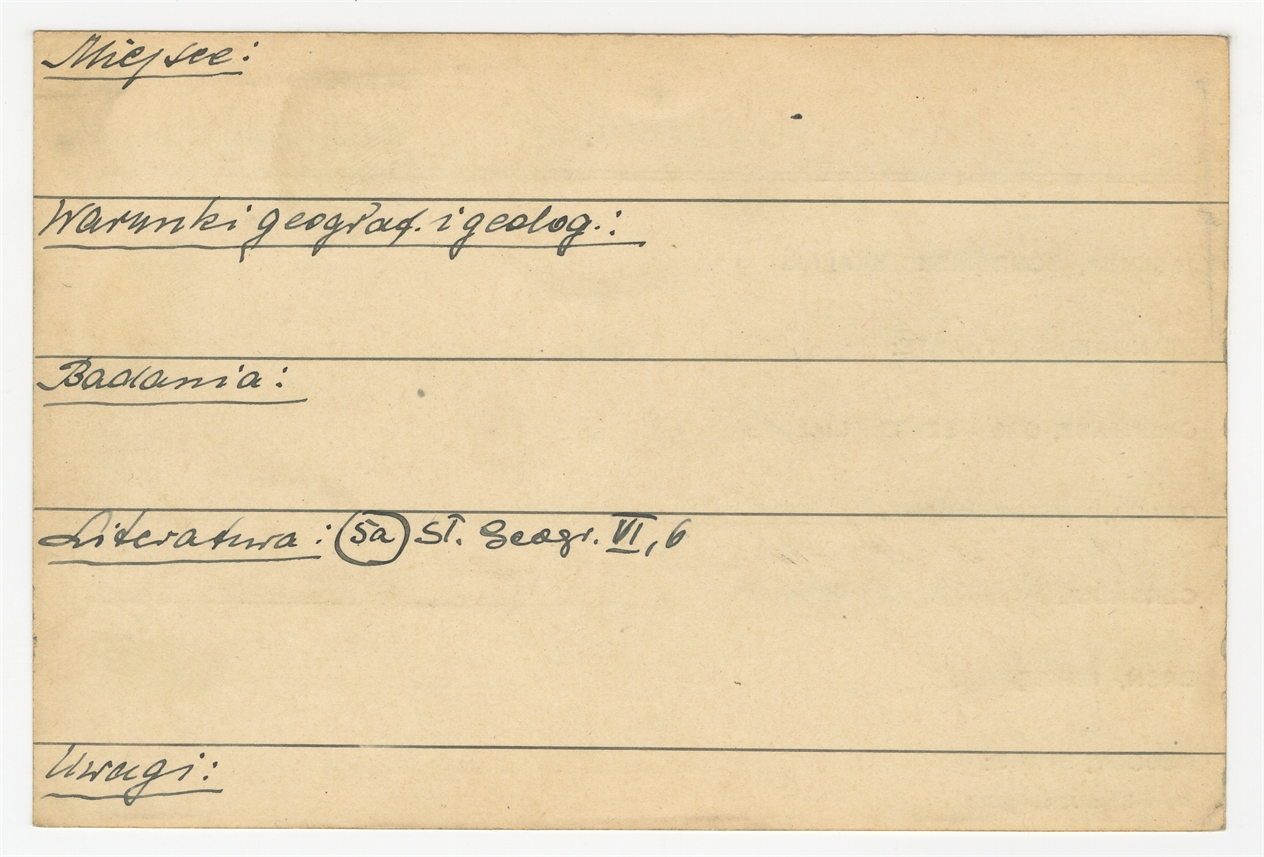 Miejsce:
Warunki geograf. i geolog.:
Badania:
Literatura: 5a St. Geogr. VI, 6
Uwagi: